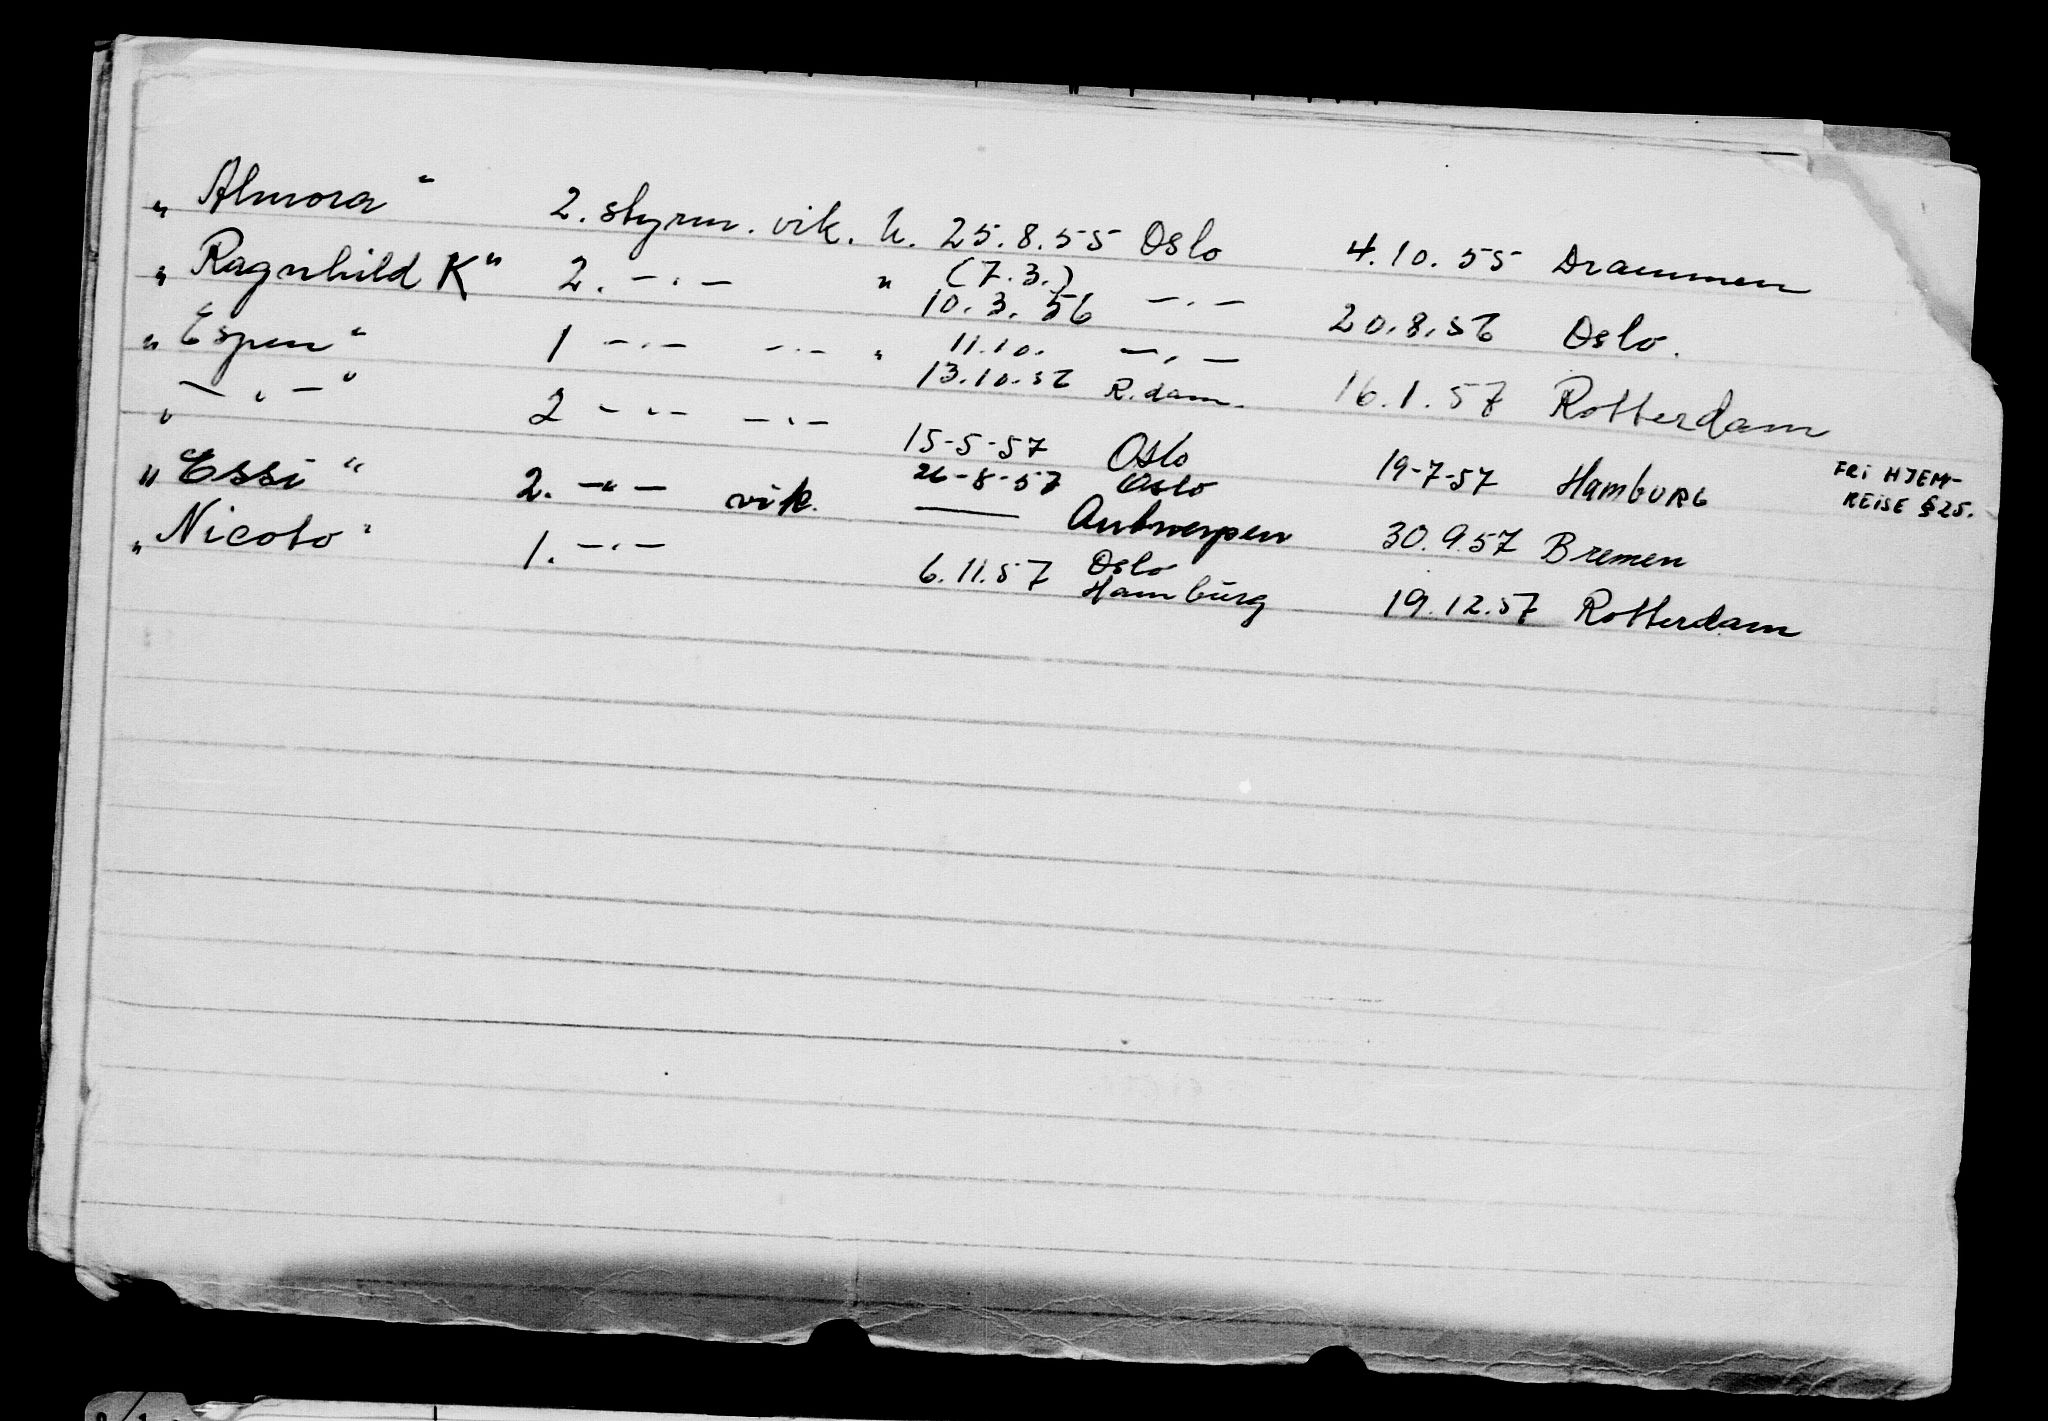 „Almora" 2. styrm. vik. h. 25.8.55 Oslo 4.10.55 Drammen
„Ragnhild K" 2. —"— " (7.3.) 10.3.56 —"— 20.8.56 Oslo.
„Espen" 1 —"— —"— " 11.10. —"—
13.10.56 R.dam. 16.1.57 Rotterdam
„—"—" 2 —"— —"— 15-5-57 Oslo 19-7-57 Hamburg FRI HJEM-
REISE §25.
„Essi" 2. —"— vik. 26-8-57 Oslo
—— Antwerpen 30.9.57 Bremen
„Nicoto" 1. —"— 6.11.57 Oslo
Hamburg 19.12.57 Rotterdam